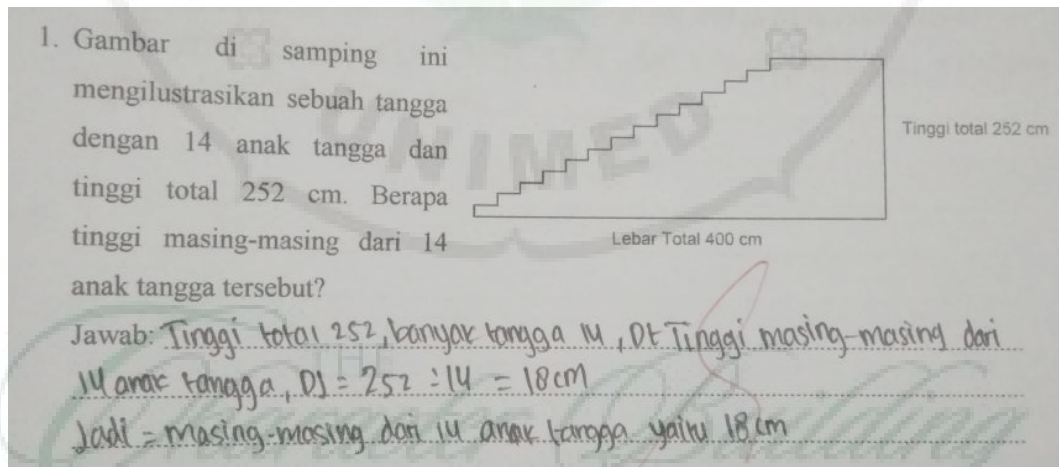 1. Gambar di samping ini
mengilustrasikan sebuah tangga
dengan 14 anak tangga dan
tinggi total 252 cm. Berapa
tinggi masing-masing dari 14
anak tangga tersebut?
Tinggi total 252 cm
Lebar Total 400 cm
Jawab: Tinggi total 252, banyak tangga 14, Dt Tinggi masing-masing dari
14 anak tangga, DJ = 252 : 14 = 18 cm
Jadi = masing-masing dari 14 anak tangga yaitu 18 cm
UNIMED
THE
Character Building